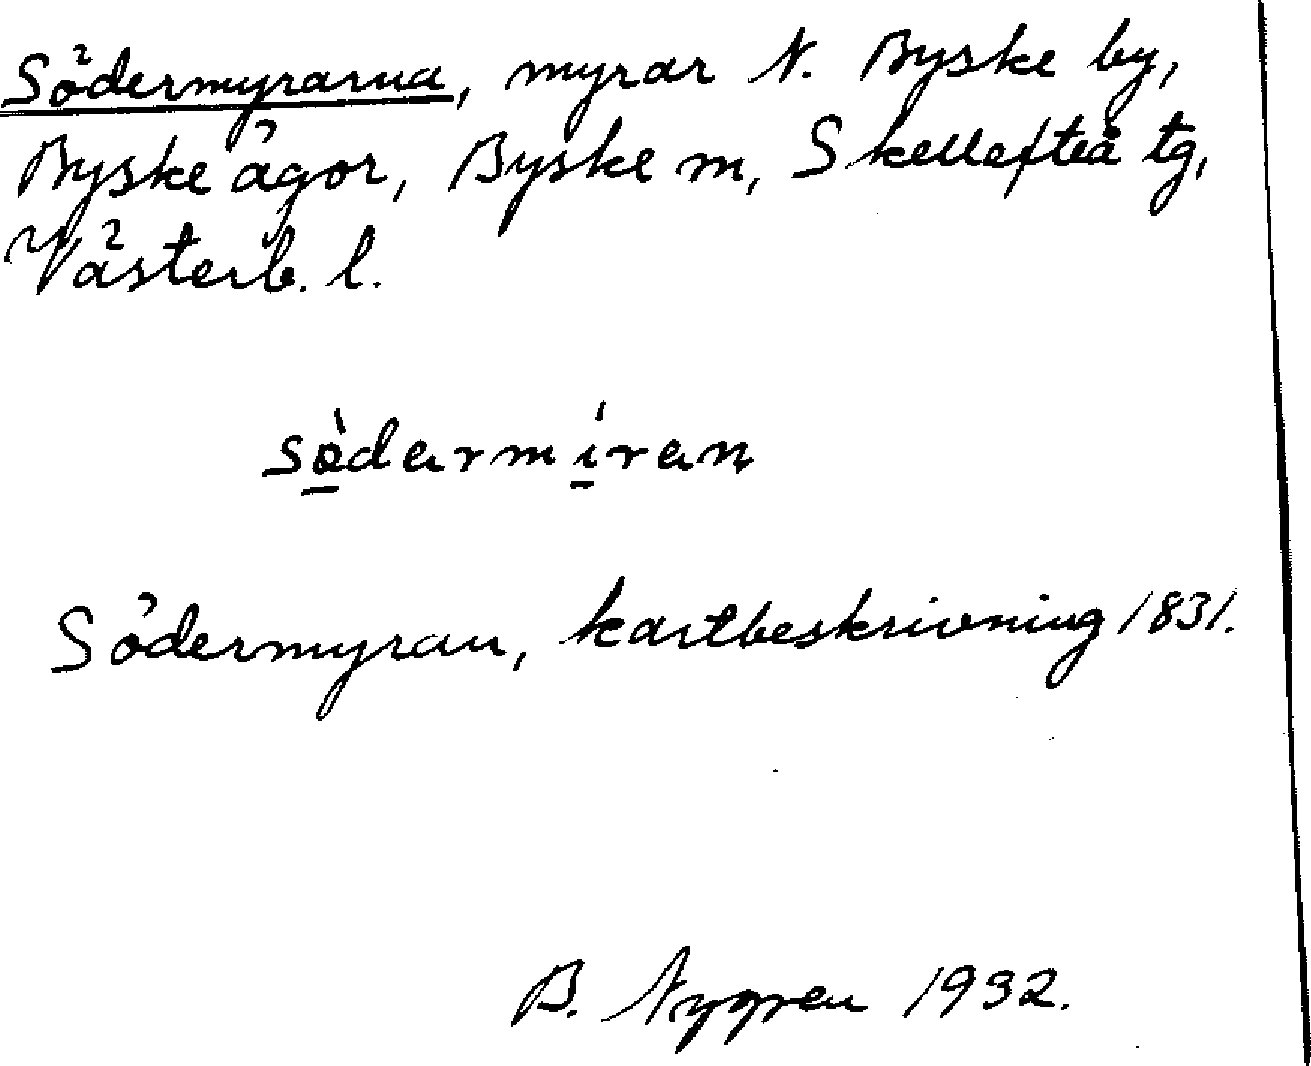 Södermyrarna, myrar N. Byske by,
Byske ägor, Byske m, Skellefteå tg,
Västerb. l.
södarmiran
Södermyran, kartbeskrivning 1831.
B. Nygren 1932.